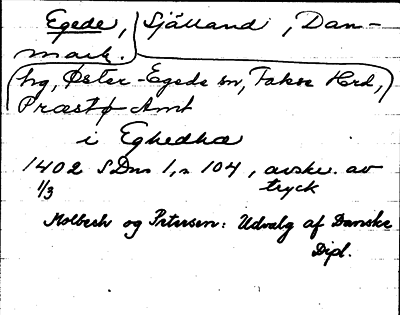 Egede, Själland, Dan-
mark.
hg, Øster-Egede sn, Fakse Hrd,
Præstø Amt
i Eghedha
1402 SDns 1, s 104, avskr. av
1/3 tryck
Molbech og Petersen: Udvalg af Danske
Dipl.